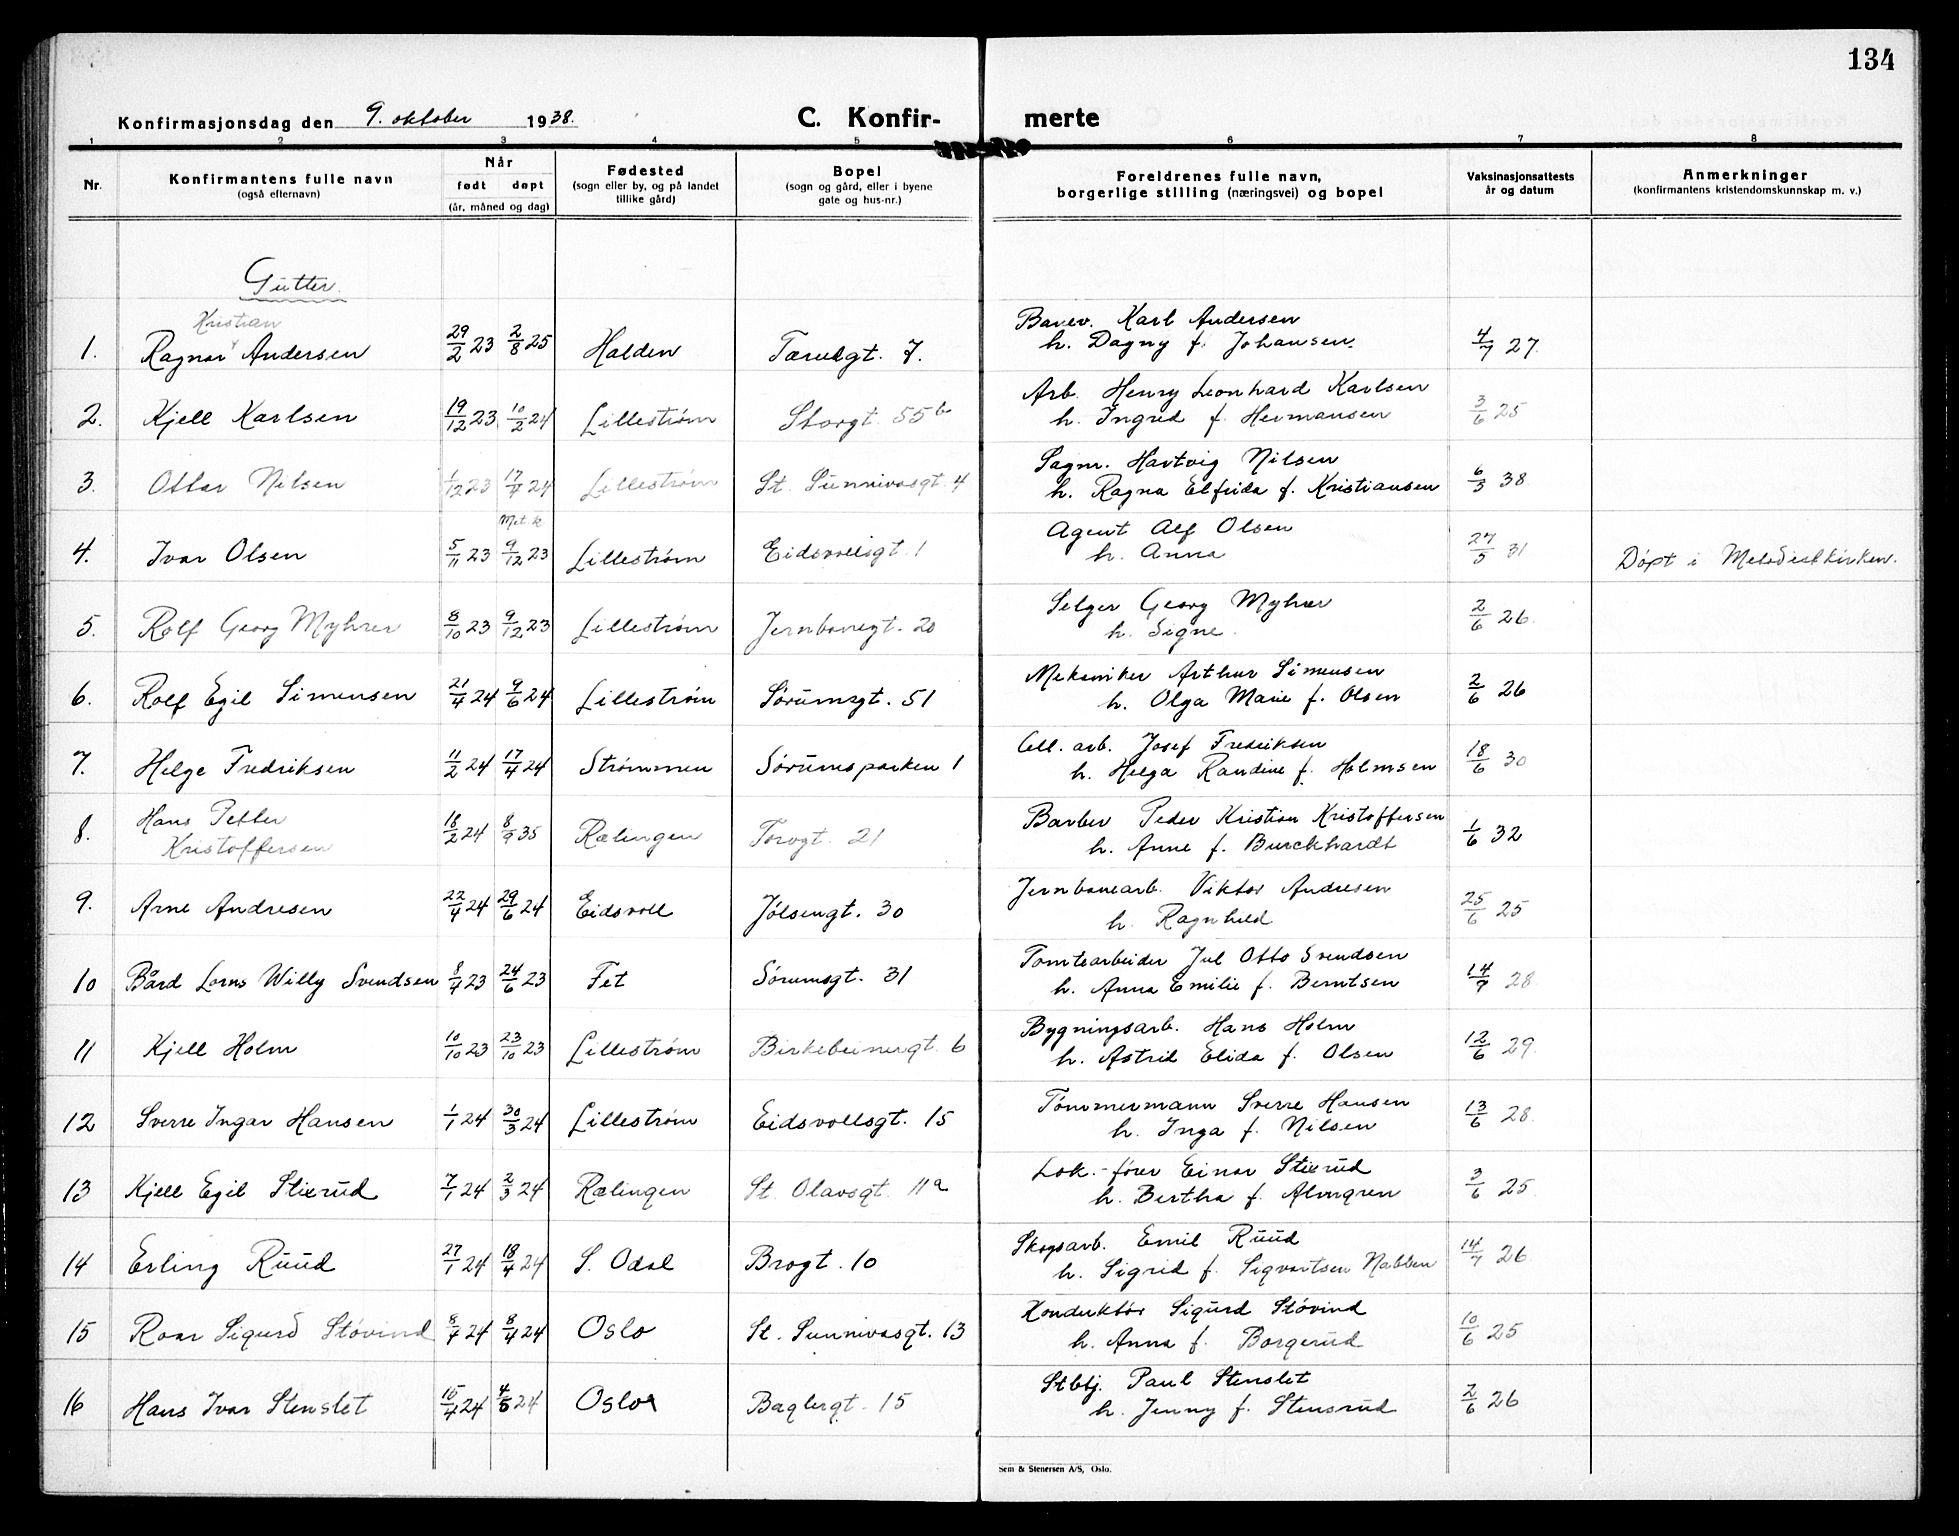 134
Konfirmasjonsdag den 9. oktober 1938.
C. Konfir- merte
1 2 3 4 5 6 7 8
Nr.
Konfirmantens fulle navn
(også efternavn)
Når
født døpt
(år, måned og dag)
Fødested
(sogn eller by, og på landet
tillike gård)
Bopel
(sogn og gård, eller i byene
gate og hus-nr.)
Foreldrenes fulle navn,
borgerlige stilling (næringsvei) og bopel
Vaksinasjonsattests
år og datum
Anmerkninger
(konfirmantens kristendomskunnskap m. v.)
Gutter.
Kristian
Banev. Karl Andersen
1. Ragnar Andersen 29/2 23 2/8 25 Halden Tærudgt. 7. h. Dagny f. Johansen. 4/7 27.
Arb. Henry Leonhard Karlsen
2. Kjell Karlsen 19/12 23 10/2 24 Lillestrøm Storgt. 55 b h. Ingrid f. Hermansen 3/6 25
Sagm. Hartvig Nilsen
3. Ottar Nilsen 1/12 23 17/4 24 Lillestrøm St. Sunnivasgt. 4 h. Ragna Elfrida f. Kristiansen 6/5 38
Met. k. Agent Alf Olsen
4. Ivar Olsen 5/11 23 9/12 23 Lillestrøm Eidsvollsgt. 1 h. Anna 27/5 31 Døpt i Metodistkirken.
Selger Georg Myhrer
5. Rolf Georg Myhrer 8/10 23 9/12 23 Lillestrøm Jernbanegt. 20 h. Signe. 2/6 26.
Mekaniker Arthur Simensen
6. Rolf Egil Simensen 21/4 24 9/6 24 Lillestrøm Sørumsgt. 51 h. Olga Marie f. Olsen 2/6 26
Cell. arb. Josef Fredriksen
7. Helge Fredriksen 11/2 24 17/4 24 Strømmen Sørumsparken 1 h. Helga Randine f. Holmsen 18/6 30
8. Hans Petter 18/2 24 8/9 35 Rælingen Torvgt. 21 Barber Peder Kristian Kristoffersen 1/6 32
Kristoffersen h. Anne f. Burckhardt
Jernbanearb. Viktor Andresen
9. Arne Andresen 22/4 24 29/6 24 Eidsvoll Jølsengt. 30 h. Ragnhild 25/6 25
Tomtearbeider Jul Otto Svendsen
10 Bård Lorns Willy Svendsen 8/4 23 24/6 23 Fet Sørumsgt. 31 h. Anna Emilie f. Berntsen 14/7 28
Bygningsarb. Hans Holm
11 Kjell Holm 10/10 23 23/10 23 Lillestrøm Birkebeinergt. 6 h. Astrid Elida f. Olsen 12/6 29.
Tømmermann Sverre Hansen
12 Sverre Ingar Hansen 1/1 24 30/3 24 Lillestrøm Eidsvollsgt. 15 h. Inga f. Nilsen 13/6 28.
Lok.-fører Einar Stierud
13 Kjell Egil Stierud 7/1 24 2/3 24 Rælingen St. Olavsgt. 11 a h. Bertha f. Almgren 3/6 25
Skogsarb. Emil Ruud
14 Erling Ruud 27/1 24 18/4 24 S. Odal Brogt. 10 h. Sigrid f. Sigvartsen Nabben 14/7 26
Konduktør Sigurd Støvind
15 Roar Sigurd Støvind 8/4 24 8/4 24 Oslo St. Sunnivasgt. 13 h. Anna f. Borgerud 10/6 25
Stbtj. Paul Stenslet
16 Hans Ivar Stenslet 15/4 24 4/5 24 Oslo Baglergt. 15 h. Jenny f. Stensrud 2/6 26
Sem & Stenersen A/S, Oslo.